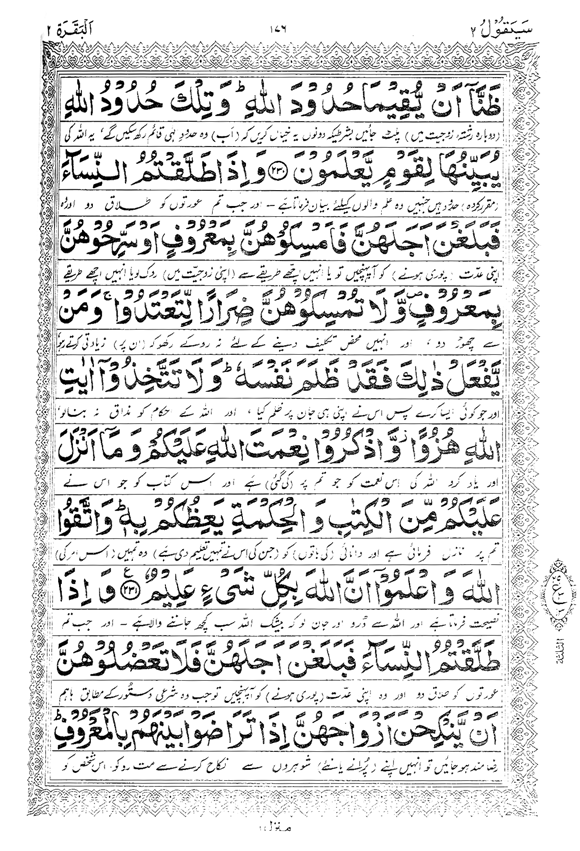 سَيَقُولُ ٢ ١٧٦ اَلْبَقَرَة ٢
ظَنَّآ اَنْ يُّقِيْمَا حُدُوْدَ اللّٰهِ ؕ وَ تِلْكَ حُدُوْدُ اللّٰهِ
(دوبارہ رشتۂ زوجیت میں) پلٹ جائیں بشرطیکہ دونوں یہ خیال کریں کہ (اب) وہ حدودِ الٰہی قائم رکھ سکیں گے، یہ اللہ کی
يُبَيِّنُهَا لِقَوْمٍ يَّعْلَمُوْنَ ﴿٢٣٠﴾ وَ اِذَا طَلَّقْتُمُ النِّسَآءَ
(مقرر کردہ) حدود ہیں جنہیں وہ علم والوں کیلئے بیان فرماتا ہے ۔ اور جب تم عورتوں کو طلاق دو اور وہ
فَبَلَغْنَ اَجَلَهُنَّ فَاَمْسِكُوْهُنَّ بِمَعْرُوْفٍ اَوْ سَرِّحُوْهُنَّ
اپنی عدت (پوری ہونے) کو آ پہنچیں تو یا انہیں اچھے طریقے سے (اپنی زوجیت میں) روک لو یا انہیں اچھے طریقے
بِمَعْرُوْفٍ ۪ وَّ لَا تُمْسِكُوْهُنَّ ضِرَارًا لِّتَعْتَدُوْا ۚ وَ مَنْ
سے چھوڑ دو ، اور انہیں محض تکلیف دینے کے لئے نہ روکے رکھو کہ (ان پر) زیادتی کرتے رہو
يَّفْعَلْ ذٰلِكَ فَقَدْ ظَلَمَ نَفْسَهٗ ؕ وَ لَا تَتَّخِذُوْۤا اٰيٰتِ
اور جو کوئی ایسا کرے پس اس نے اپنی ہی جان پر ظلم کیا ، اور اللہ کے احکام کو مذاق نہ بنا لو ،
اللّٰهِ هُزُوًا ۫ وَّ اذْكُرُوْا نِعْمَتَ اللّٰهِ عَلَيْكُمْ وَ مَاۤ اَنْزَلَ
اور یاد کرو اللہ کی اس نعمت کو جو تم پر (کی گئی) ہے اور اس کتاب کو جو اس نے
عَلَيْكُمْ مِّنَ الْكِتٰبِ وَ الْحِكْمَةِ يَعِظُكُمْ بِهٖ ؕ وَ اتَّقُوا
تم پر نازل فرمائی ہے اور دانائی (کی باتوں) کو (جن کی اس نے تمہیں تعلیم دی ہے) وہ تمہیں (اس امر کی)
اللّٰهَ وَ اعْلَمُوْۤا اَنَّ اللّٰهَ بِكُلِّ شَیْءٍ عَلِيْمٌ ﴿٢٣١﴾ ع وَ اِذَا
نصیحت فرماتا ہے اور اللہ سے ڈرو اور جان لو کہ بیشک اللہ سب کچھ جاننے والا ہے ۔ اور جب تم
طَلَّقْتُمُ النِّسَآءَ فَبَلَغْنَ اَجَلَهُنَّ فَلَا تَعْضُلُوْهُنَّ
عورتوں کو طلاق دو اور وہ اپنی عدت (پوری ہونے) کو آ پہنچیں تو جب وہ شرعی دستور کے مطابق باہم
اَنْ يَّنْكِحْنَ اَزْوَاجَهُنَّ اِذَا تَرَاضَوْا بَيْنَهُمْ بِالْمَعْرُوْفِ ؕ
رضامند ہو جائیں تو انہیں اپنے (پرانے یا نئے) شوہروں سے نکاح کرنے سے مت روکو ، اس شخص کو
منزل ١